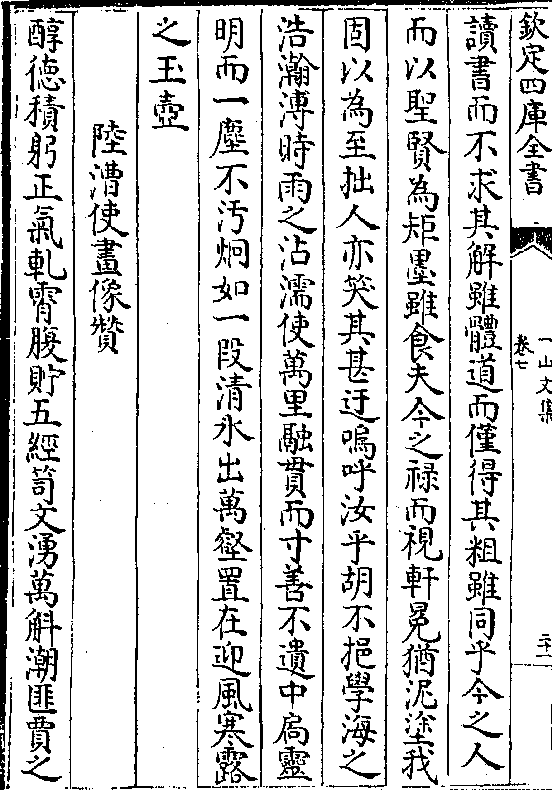 欽定四庫全書
一山文集
卷七
讀書而不求其解雖體道而僅得其粗雖同乎今之人
而以聖賢為矩墨雖食夫今之禄而視軒冕猶泥塗我
固以為至拙人亦笑其甚迂嗚呼汝乎胡不挹學海之
浩瀚溥時雨之沾濡使萬里融貫而寸善不遺中扃靈
明而一塵不汚炯如一段清氷出萬壑置在迎風寒露
之玉壺
陸漕使畫像贊
醇德積躬正氣軋霄腹貯五經笥文湧萬斛潮匪賈之